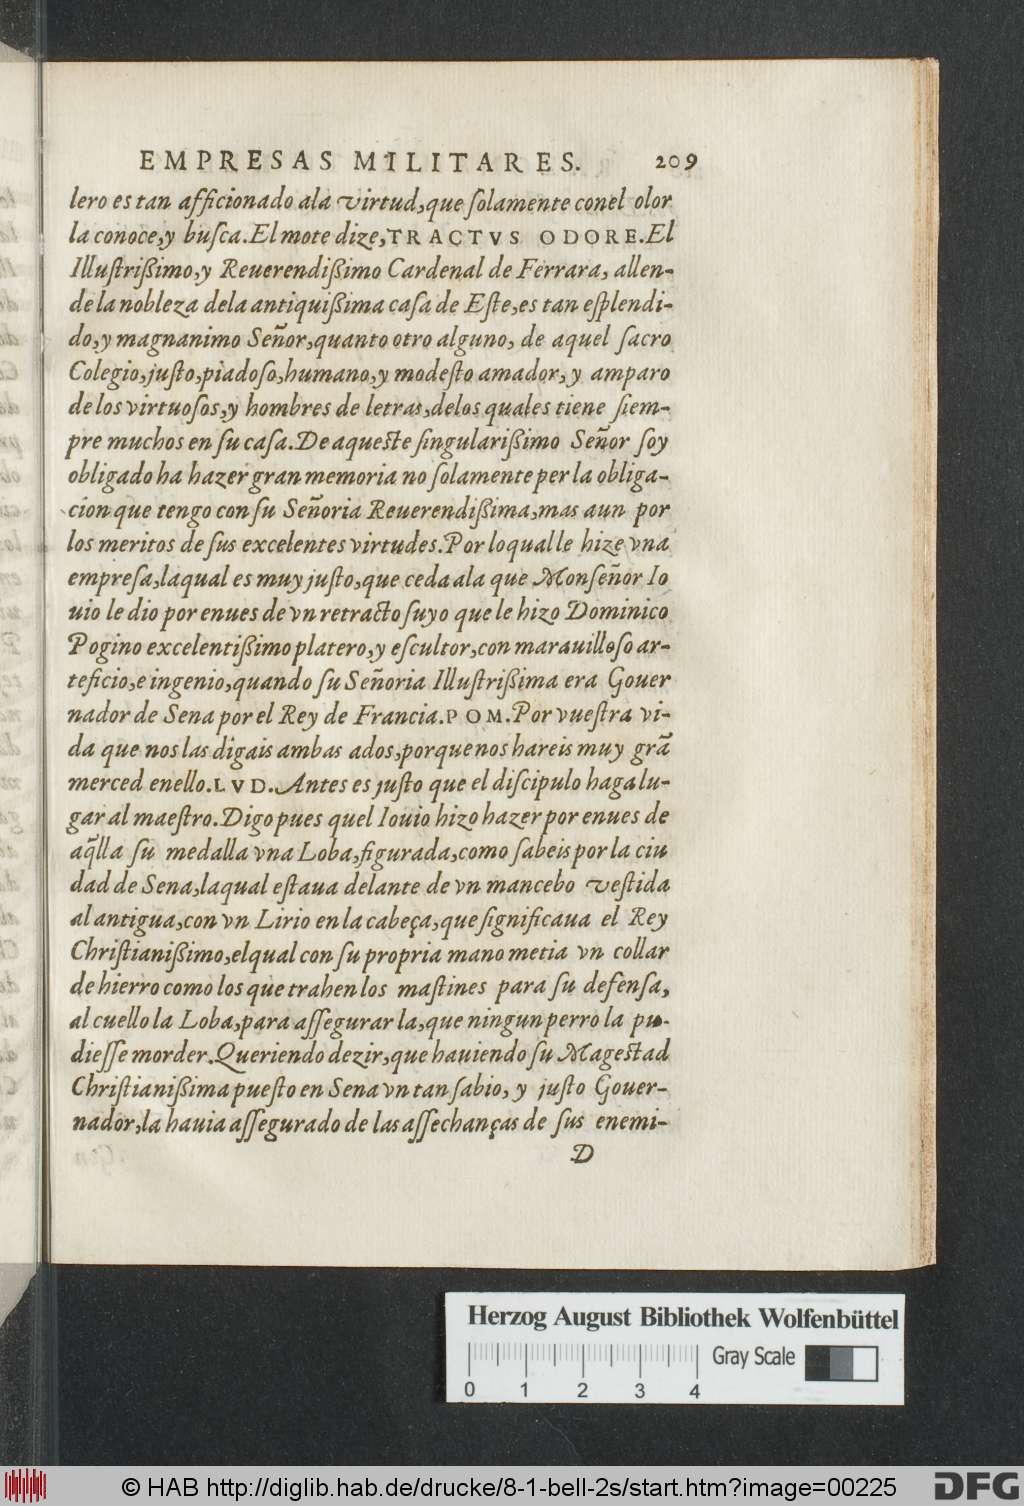 EMPRESAS MILITARES. 209
lero es tan afficionado ala virtud,que ſolamente conel olor
la conoce,y buſca.El mote dize,TRACTVS ODORE.El
Illuſtrißimo,y Reuerendißimo Cardenal de Ferrara, allen-
de la nobleza dela antiquißima caſa de Eſte,es tan eſplendi-
do,y magnanimo Señor,quanto otro alguno, de aquel ſacro
Colegio,juſto,piadoſo,humano,y modeſto amador,y amparo
de los virtuoſos,y hombres de letras,delos quales tiene ſiem-
pre muchos en ſu caſa.De aqueſte ſingularißimo Señor ſoy
obligado ha hazer gran memoria no ſolamente per la obliga-
cion que tengo con ſu Señoria Reuerendißima,mas aun por
los meritos de ſus excelentes virtudes.Por loqual le hize vna
empreſa,laqual es muy juſto,que ceda ala que Monſeñor Io
uio le dio por enues de vn retracto ſuyo que le hizo Dominico
Pogino excelentißimo platero,y eſcultor,con marauilloſo ar-
teficio,e ingenio,quando ſu Señoria Illuſtrißima era Gouer
nador de Sena por el Rey de Francia.POM.Por vueſtra vi-
da que nos las digais ambas ados,porque nos hareis muy grā
merced enello.LVD.Antes es juſto que el diſcipulo haga lu-
gar al maeſtro.Digo pues quel Iouio hizo hazer por enues de
aq̃lla ſu medalla vna Loba,figurada,como ſabeis por la ciu
dad de Sena,laqual eſtaua delante de vn mancebo veſtida
al antigua,con vn Lirio en la cabeça,que ſignificaua el Rey
Chriſtianißimo,elqual con ſu propria mano metia vn collar
de hierro como los que trahen los maſtines para ſu defenſa,
al cuello la Loba,para aſſegurar la,que ningun perro la pu-
dieſſe morder.Queriendo dezir,que hauiendo ſu Mageſtad
Chriſtianißima pueſto en Sena vn tan ſabio, y juſto Gouer-
nador,la hauia aſſegurado de las aſſechanças de ſus enemi-
D
Herzog August Bibliothek Wolfenbüttel
Gray Scale
0 1 2 3 4
© HAB http://diglib.hab.de/drucke/8-1-bell-2s/start.htm?image=00225
DFG